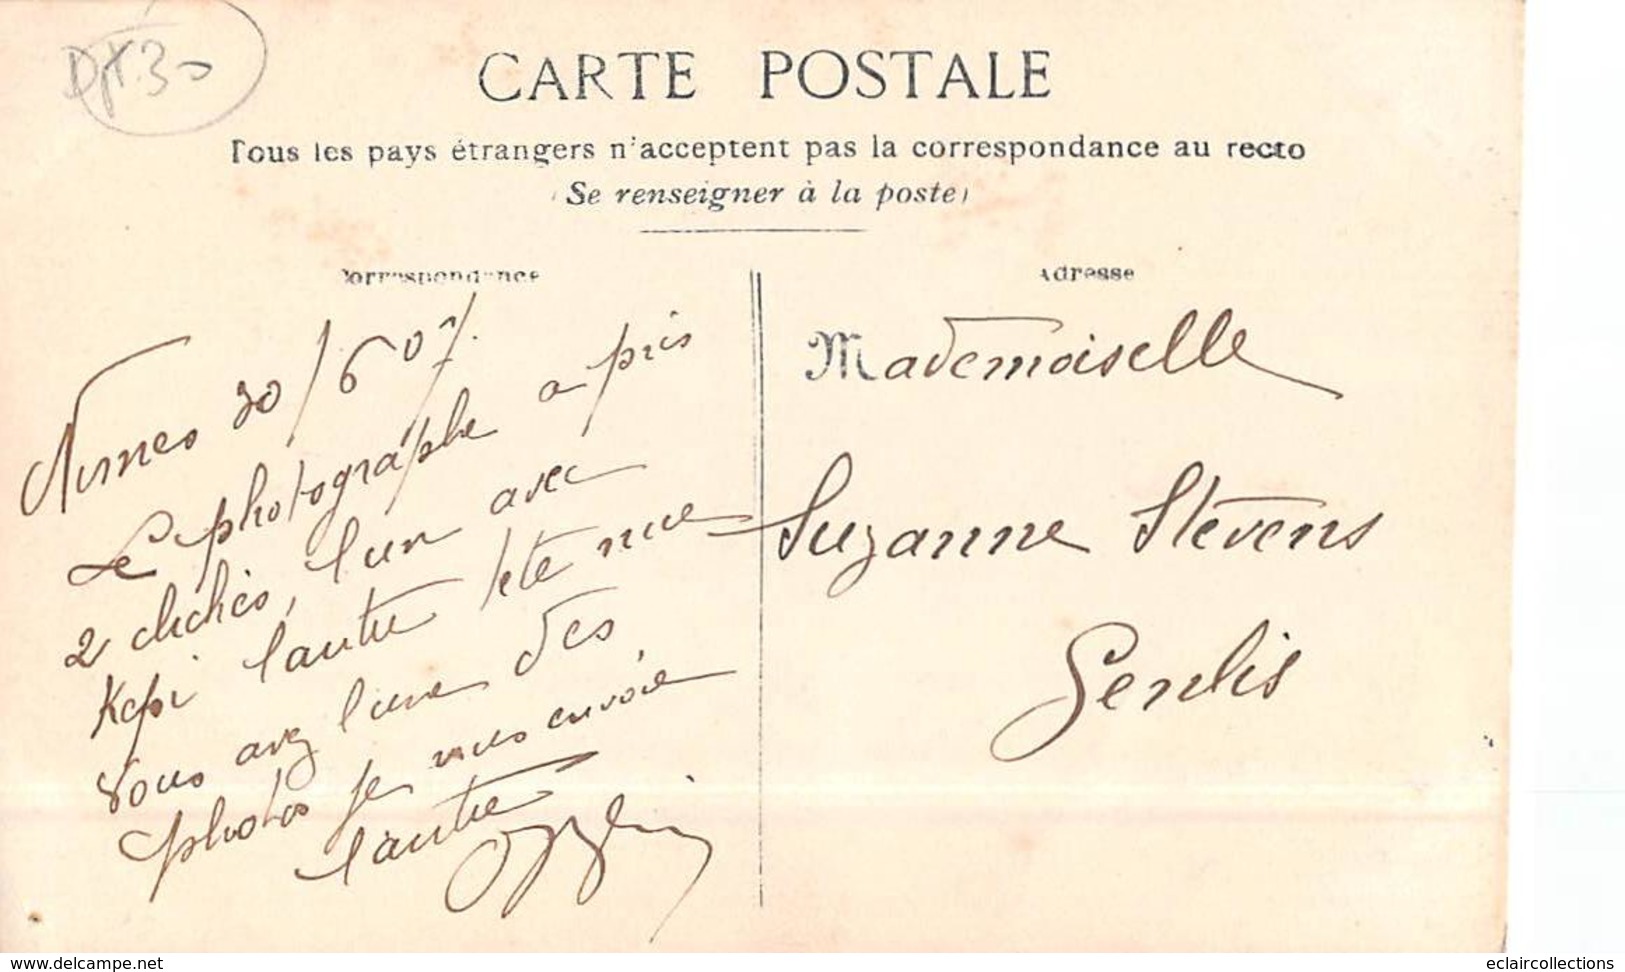 Dpt 30
CARTE POSTALE
Tous les pays étrangers n'acceptent pas la correspondance au recto
(Se renseigner à la poste)
Correspondance
Adresse
Nimes 30/6 07.
Le photographe a pris
2 clichés, l'un avec
Kepi l'autre tête nue
vous avez l'une des
photos je vous envoie
l'autre
Mademoiselle
Suzanne Stevens
Senlis
www.delcampe.net
eclaircollections